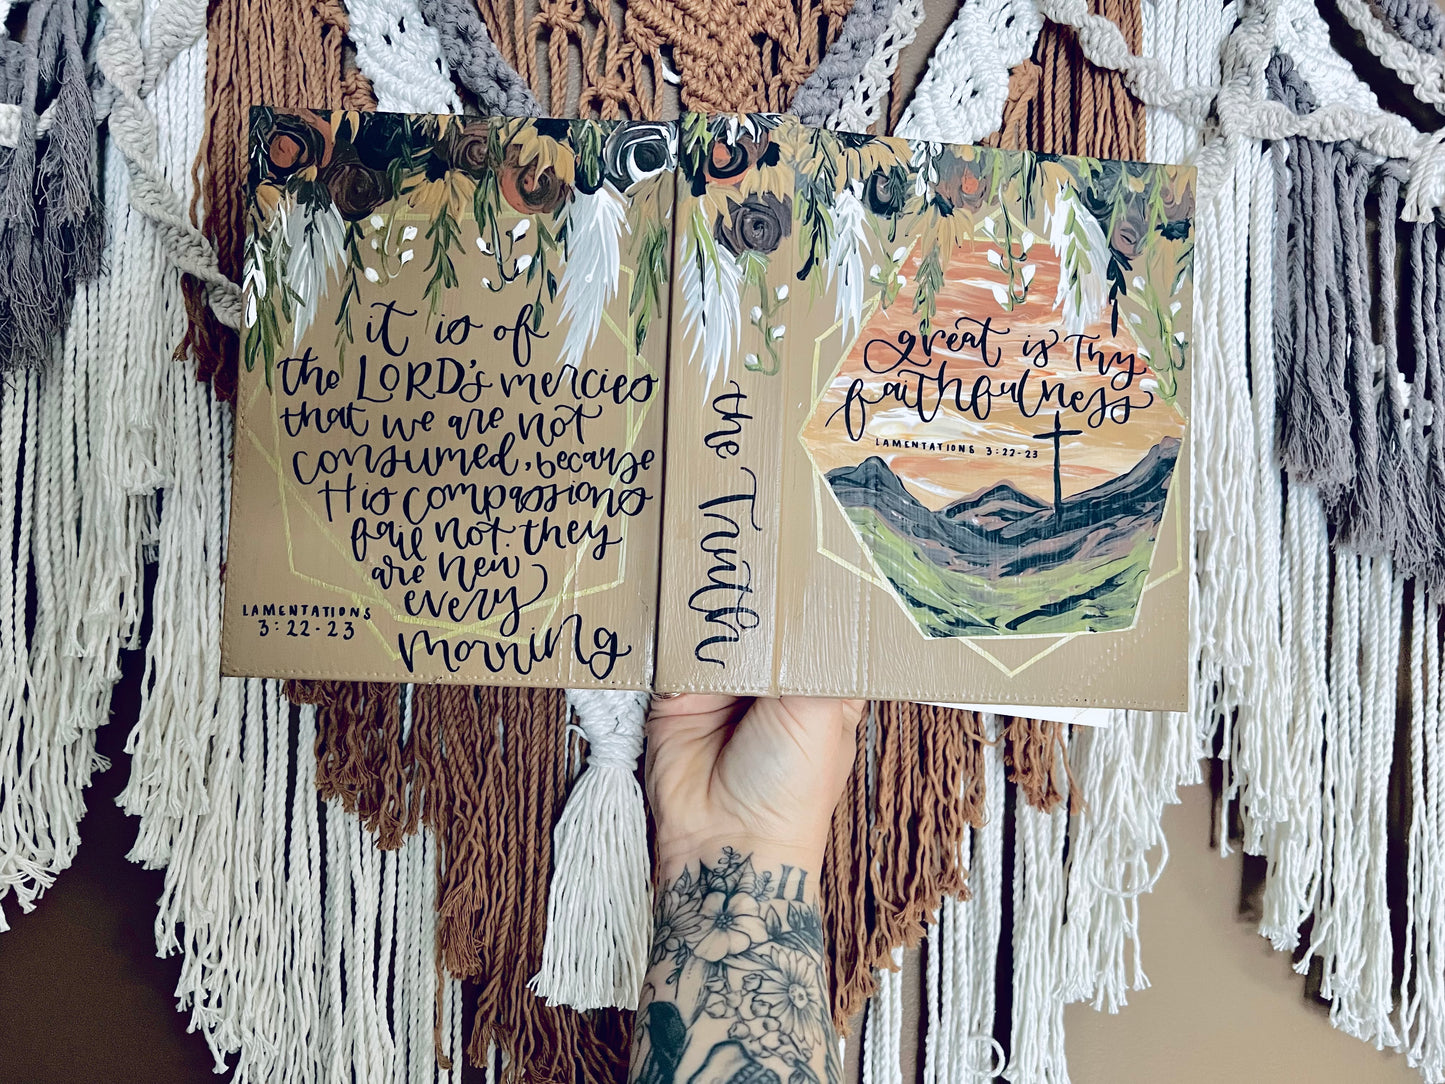 it is of
the LORD's mercies
that we are not
consumed, because
His compassions
fail not. they
are new
every
morning
LAMENTATIONS
3:22-23
the Truth
great is Thy
faithfulness
LAMENTATIONS 3:22-23
II